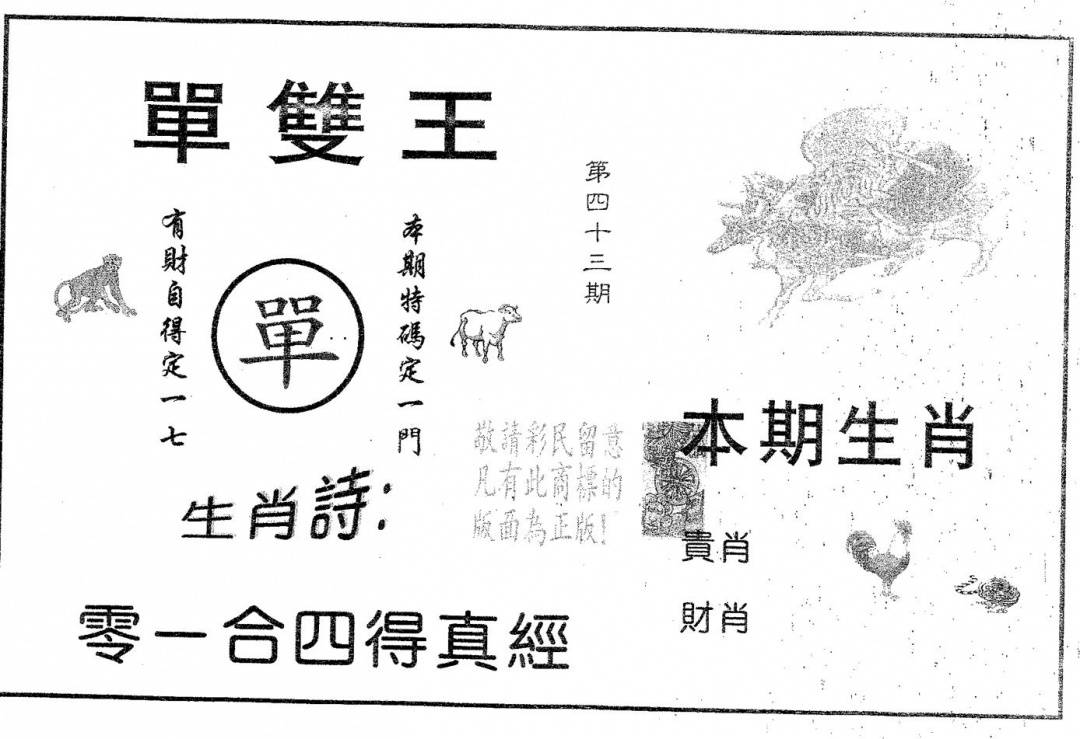 單雙王
第四十三期
本期特碼定一門
單
有財自得定一七
敬請彩民留意
凡有此商標的
版面為正版!
生肖詩:
零一合四得真經
本期生肖
貴肖
財肖